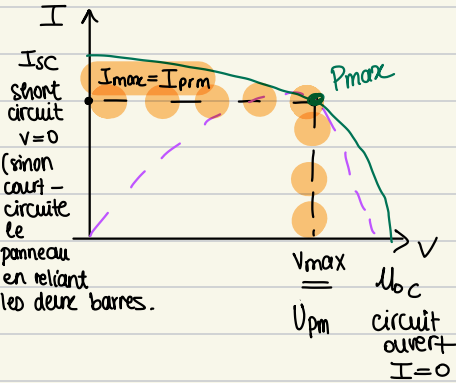 I
Isc
short
circuit
V=0
(sinon
court-
circuite
le
panneau
en reliant
les deux barres.
Imax=Iprm
Pmax
V
Vmax
Upm
Uoc
circuit
ouvert
I=0